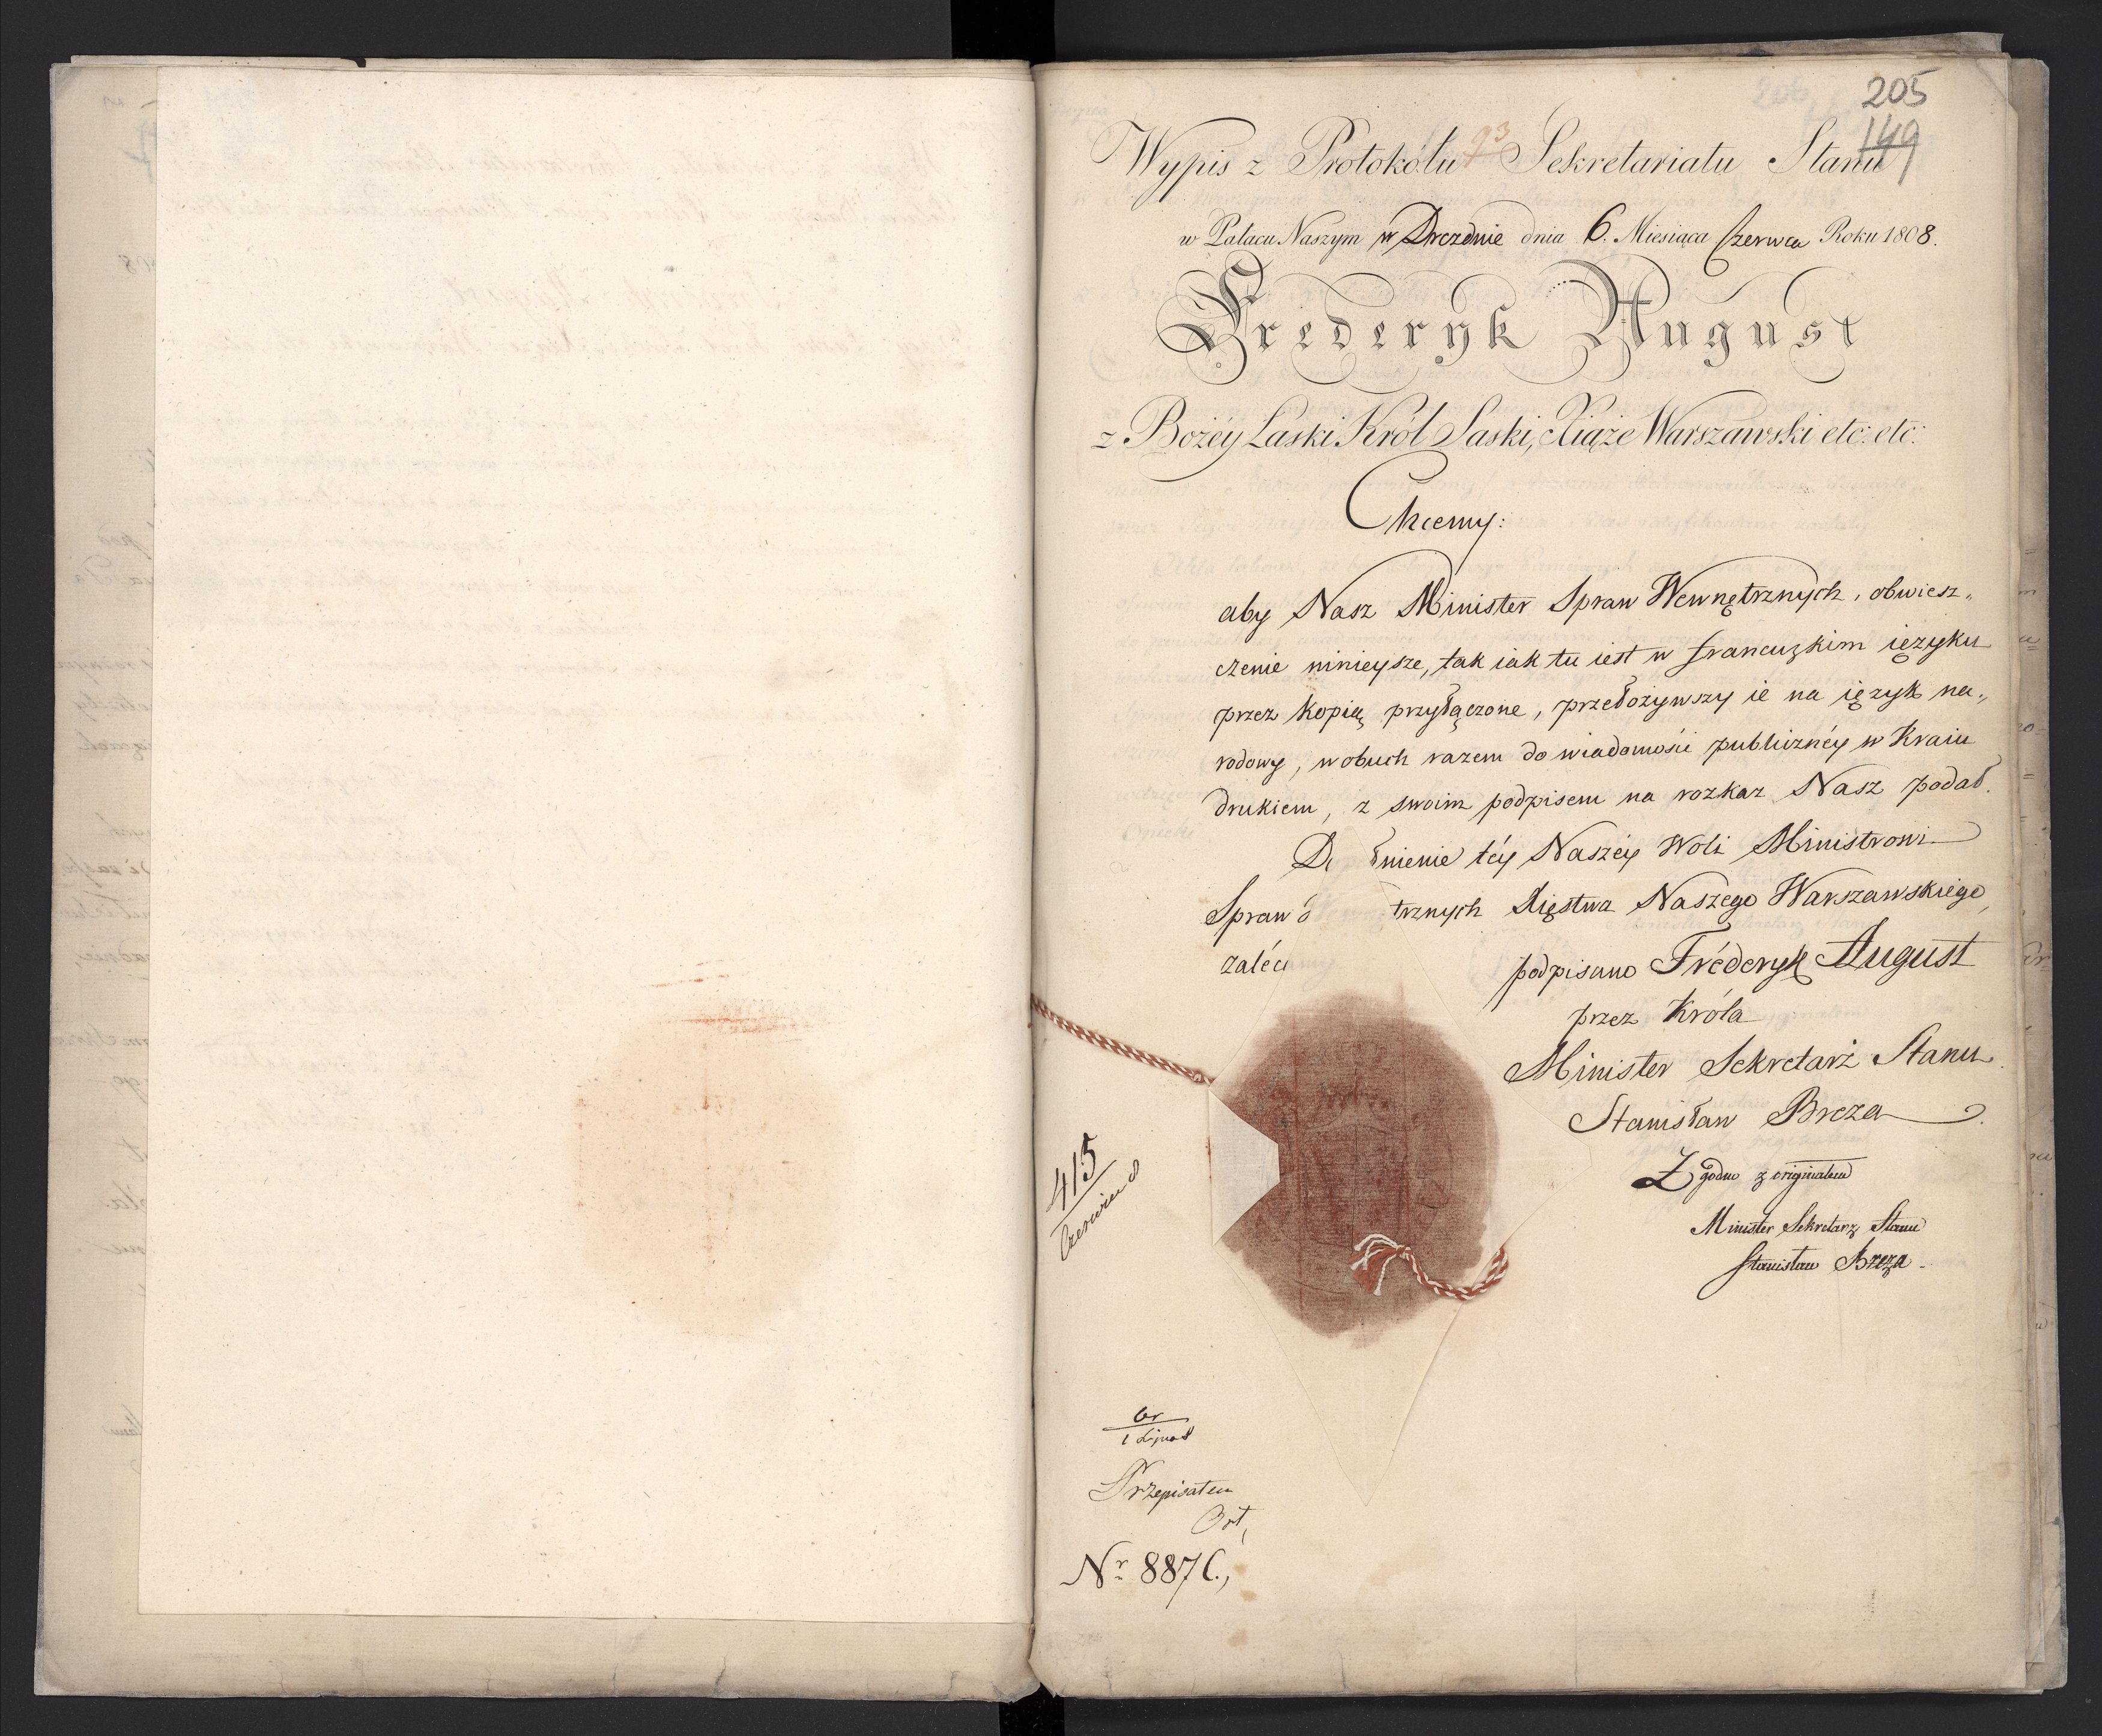 205
149
93
Wypis z Protokółu Sekretariatu Stanu
w Pałacu Naszym w Dreznie dnia 6. Miesiąca Czerwca Roku 1808.
Frederyk August
z Bożéy Łaski Król Saski, Xiąże Warszawski etc: etc:
Chcemy:
aby Nasz Minister Spraw Wewnętrznych, obwiesz„
czenie ninieysze, tak iak tu iest w francuzkim ięzyku
przez kopią przyłączone, przełożywszy ie na ięzyk na„
rodowy, w obuch razem do wiadomośii publiznéy w Kraiu
drukiem, z swoim podpisem na rozkaz Nasz podał.
D łnienie téy Naszéy Woli Ministrowi
Spraw trznych Xięstwa Naszego Warszawskiego,
zaléc
podpisano Fréderyk August
przez Króla
Minister Sekretarz Stanu.
Stanisław Breza
Zgodno z originałem
Minister Sekretarz Stanu
Stanisław Breza
415
Czerwien 8
Przepisałem
Ort,
Nr 887 C.,